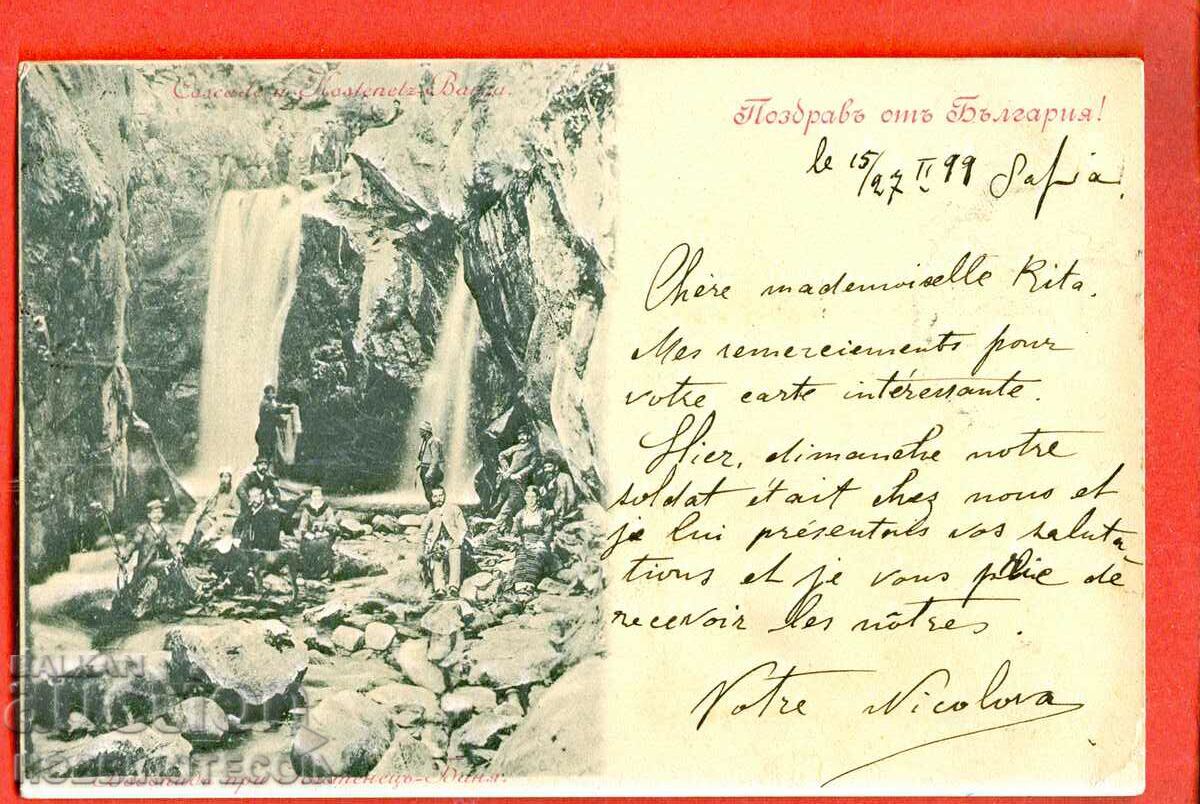 Cascade a Kostenetz-Banja.
Поздравъ отъ България!
le 15/27 II 99 Sofia.
Chère mademoiselle Rita.
Mes remerciements pour
votre carte intéressante.
Hier, dimanche notre
soldat était chez nous et
je lui présentais vos saluta-
tions et je vous prie de
recevoir les nôtres.
Votre Nicolova
Водопадъ при Костенецъ-Баня.
BALKAN
auction
KOSTA VITECOIN